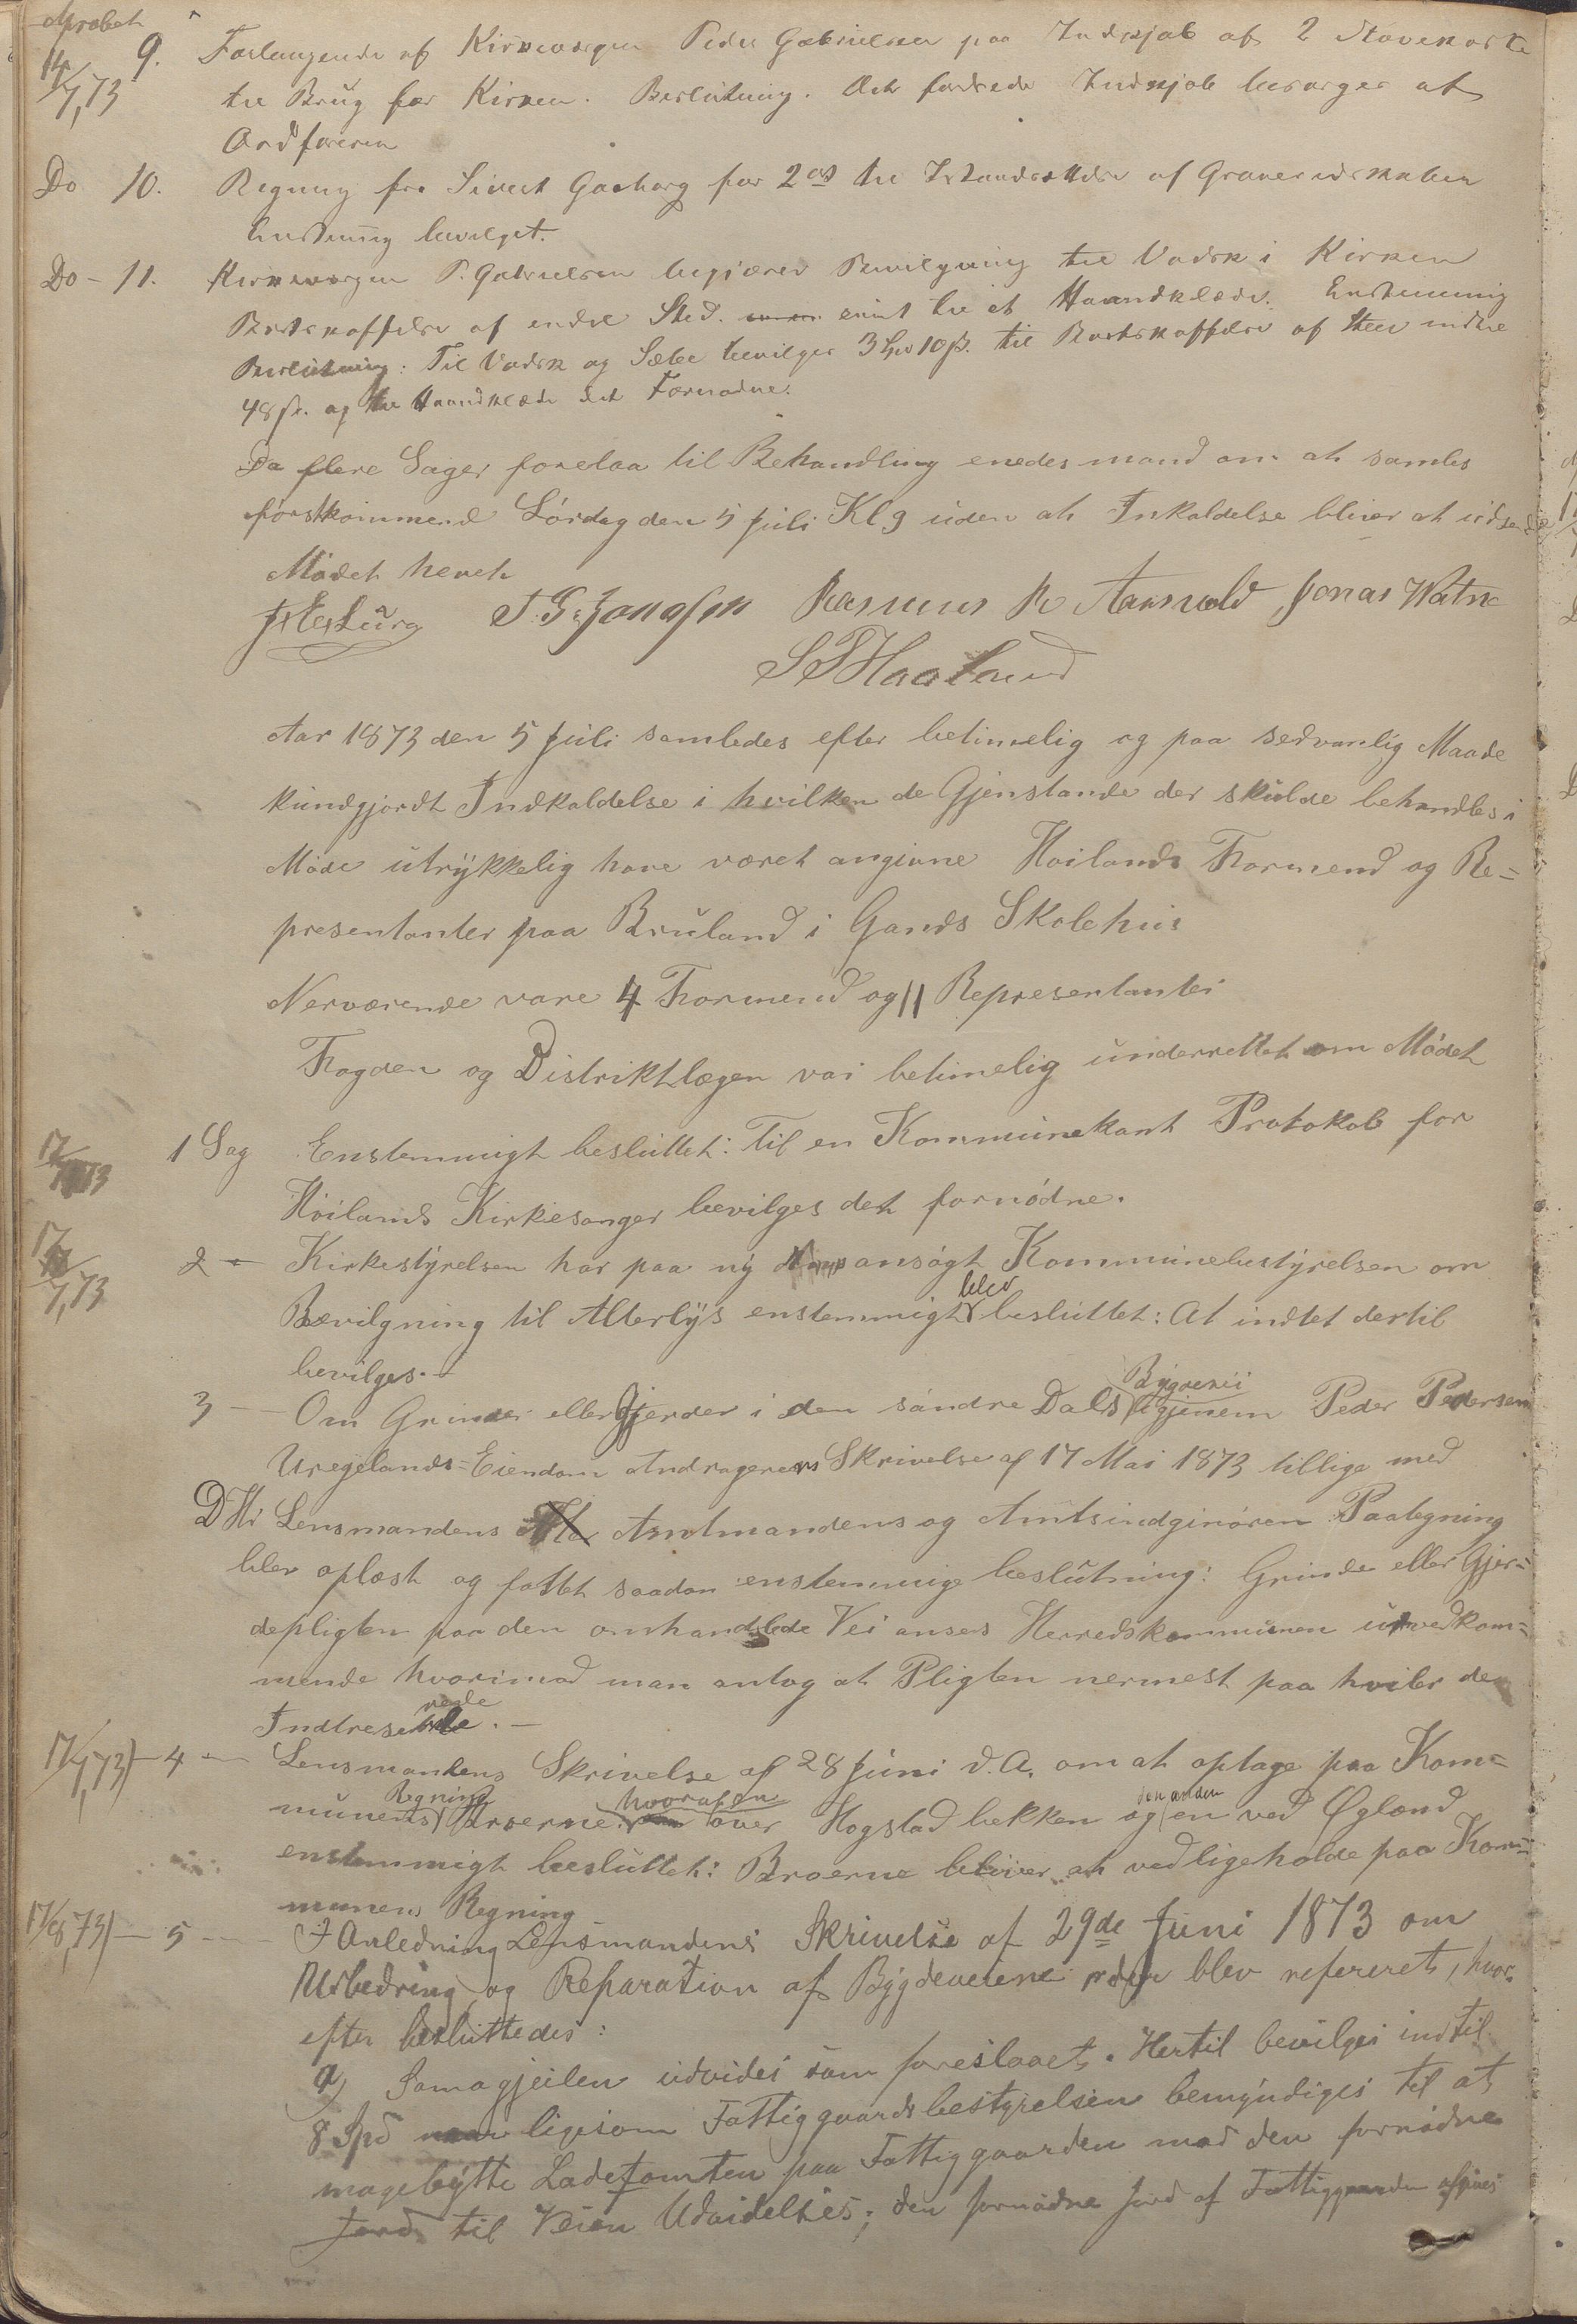 Aprobert
14/7,73 9. Forlangende af Kirkevergen Peder Gabrielsen paa Indkjøb af 2 Støvekoste
til Brug for Kirken. Beslutning. Det fordrede Indkjøb besørges af
Ordføreren
Do 10. Regning fra Sivert Gaaharg for 2 ort til Istandsættelse af Graveredskaber
Enstemig bevilget.
Do - 11. Kirkevergen P. Gabrielsen begjærer Bevilgning til Vadsk i Kirken
Bortskaffelse af endel Sted. samt til et Haandklæde. Enstemmig
Beslutning: Til Vadsk og Sæbe bevilges 3 10 ß. til Bortskaffelse af
48 ß. og til Haandklæde det Fornødne.
Da flere Sager forelaa til Behandling enedes mand om at samles
førstkommend Lördag den 5 Juli Kl 9 uden at Inkaldelse bliver at udsende
Mödet hevet
T. G. Jonassen Rasmus R Aarsvold Jonas Watne
S S Haaland
Aar 1873 den 5 Juli samledes efter betimelig og paa sedvanlig Maade
kundgjordt Indkaldelse i hvilken de Gjenstande der skulde behandles i
Möde utrykkelig have været angivne Høilands Formend og Re=
presentanter paa Bruland i Gands Skolehus
Nerværende vare 4 Formend og 11 Representanter
Fogden og Distriktlægen var betimelig underrettet om Mödet
17/ 73 1 Sag Enstemmigt besluttet: Til en Kommunekant Protokol for
Höilands Kirkesanger bevilges det fornödne.
17/7,73 2 - Kirkestyrelsen har paa ny ansögt Kommunebestyrelsen om
blev
Bevilgning til Alterlys enstemmigt besluttet: At indtet dertil
bevilges. -
Bygdevei
3 - Om Grinder eller Gjerder i den söndre Dals igjenem Peder Pedersen
Uregelands=Eiendom Andragerens Skrivelse af 17 Mai 1873 tillige med
D Hr Lensmandens Amtmandens og Amtsindginören Paategning
blev oplæst og fattet saadan enstemmige beslutning: Grinde eller Gjer=
depligten paa den omhandlede Vei anses Herredskommunen uvedkom=
mende hvorimod man antog at Pligten nermest paa hviler de
Indtreserede. -
17/7,73 - 4 - Lensmandens Skrivelse af 28 Juni d. A. om at optage paa Kom=
Regning hvoraf en den anden
munens Broerne over Hogstad bekken og en ved Øglænd
enstemmigt besluttet: Broerne bliver at vedligeholde paa Kom=
munens Regning
17/8,73 - 5 - I Anledning Lensmandens Skrivelse af 29de Juni 1873 om
Udbedring og Reparation af Bygdeveiene der blev refereret, hvor
efter besluttedes:
a) Somagjeilen udvides som foreslaaet. Hertil bevilges indtil
8 Spd ligesom Fattiggaardsbestyrelsen bemyndiges til at
magebytte Ladetomten paa Fattiggaarden mod den fornødne
Jord til Veien Udvidelses; den fornødne Jord af Fattiggaarden afgives